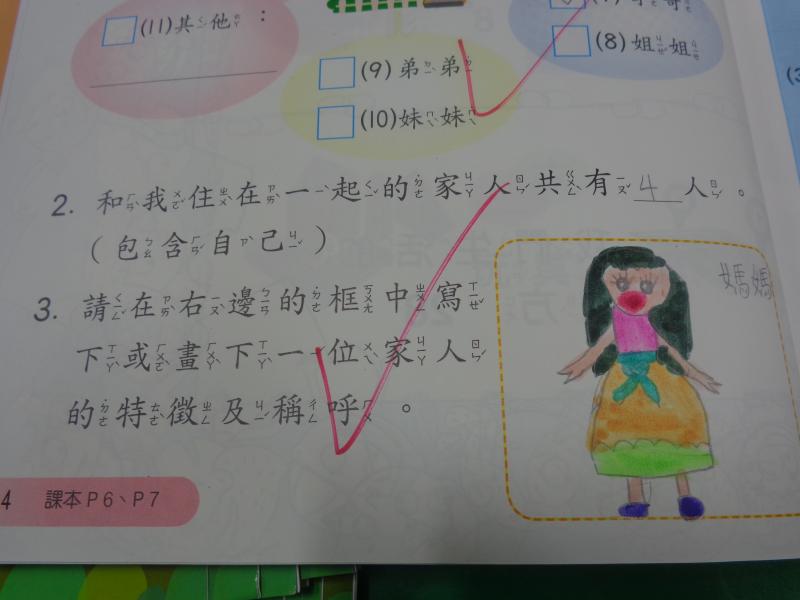 (11)其他：
(8)姐姐
(9)弟弟
(10)妹妹
2. 和我住在一起的家人共有 4 人。
(包含自己)
3. 請在右邊的框中寫
下或畫下一位家人
的特徵及稱呼。
媽媽
4 課本P6、P7